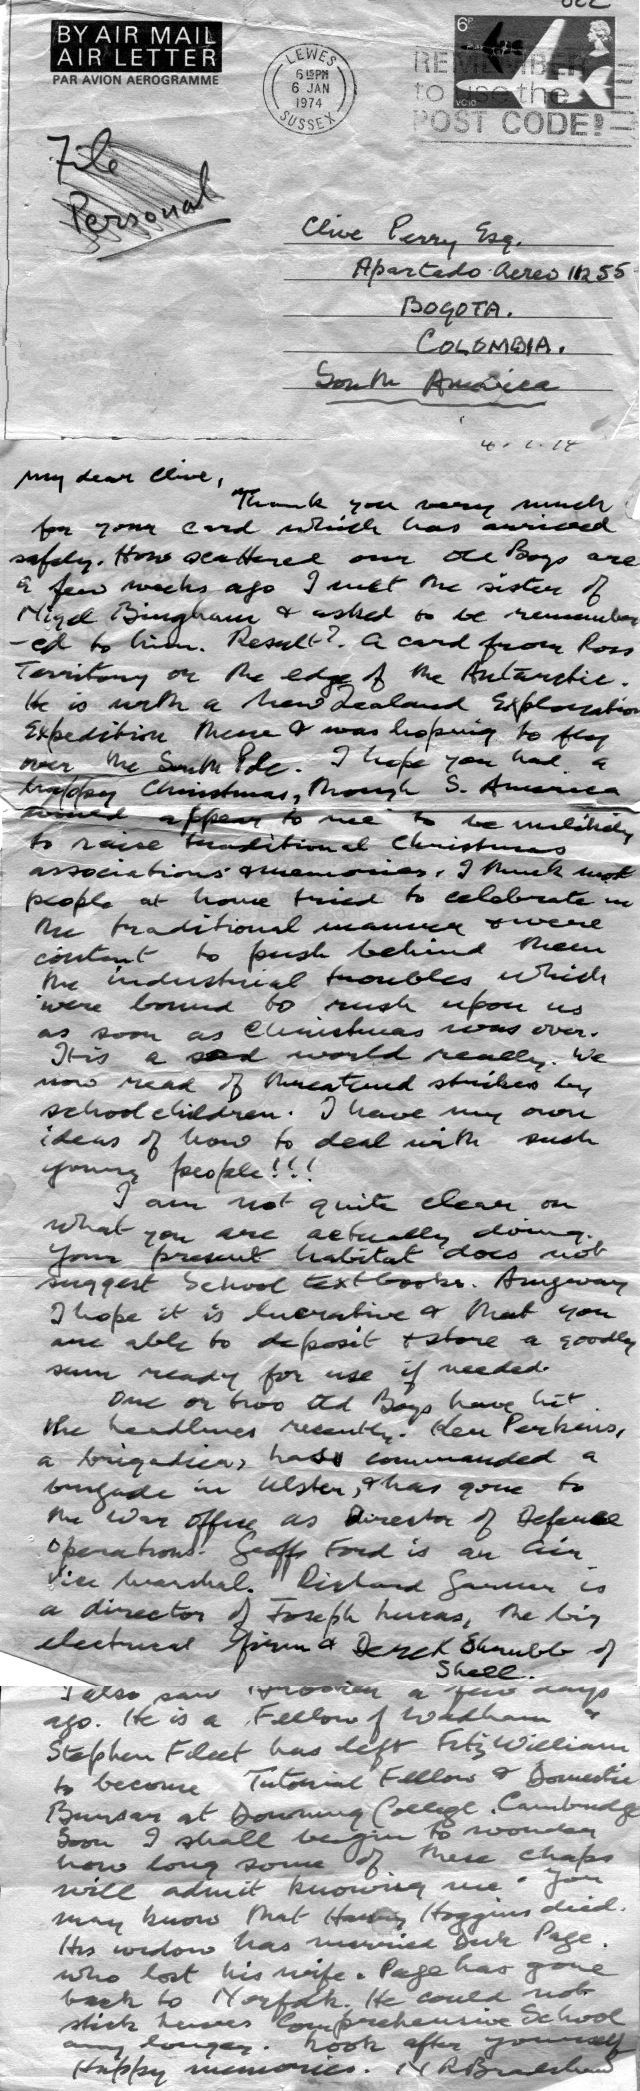 BY AIR MAIL
AIR LETTER
PAR AVION AEROGRAMME
LEWES
6 15 PM
6 JAN
1974
SUSSEX
6P
VC10
REMEMBER
to use the
POST CODE!
File
Personal
Clive Perry Esq.
Apartado Aereo 11255
BOGOTA.
COLOMBIA.
South America
My dear Clive,
Thank you very much
for your card which has arrived
safely. How scattered our Old Boys are
a few weeks ago I met the sister of
Nigel Bingham & asked to be remember
-ed to him. Result? A card from Ross
Territory on the edge of the Antarctic.
He is with a New Zealand Exploration
Expedition there & was hoping to fly
over the South Pole. I hope you had a
happy Christmas, though S. America
would appear to me to be unlikely
to raise traditional Christmas
associations & memories. I think most
people at home tried to celebrate in
the traditional manner & were
content to push behind them
the industrial troubles which
were bound to rush upon us
as soon as Christmas was over.
It is a sad world really. We
now read of threatened strikes by
school children. I have my own
ideas of how to deal with such
young people!!!
I am not quite clear on
what you are actually doing.
Your present habitat does not
suggest School textbooks. Anyway
I hope it is lucrative & that you
are able to deposit & store a goodly
sum ready for use if needed.
One or two Old Boys have hit
the headlines recently. Ken Perkins,
a brigadier, has commanded a
brigade in Ulster, & has gone to
the War Office as Director of Defence
Operations. Geoff Ford is an Air
Vice Marshal. Richard Garner is
a director of Joseph Lucas, the big
electrical firm & Derek Shrubb of
Shell.
I also saw a few days
ago. He is a Fellow of Wadham &
Stephen Fleet has left FitzWilliam
to become Tutorial Fellow & Domestic
Bursar at Downing College. Cambridge
Soon I shall begin to wonder
how long some of these chaps
will admit knowing me. You
may know that Harry Hoggins died.
His widow has married Dick Page.
who lost his wife. Page has gone
back to Norfolk. He could not
stick Lewes Comprehensive School
any longer. Look after yourself
Happy memories. N R Bradshaw